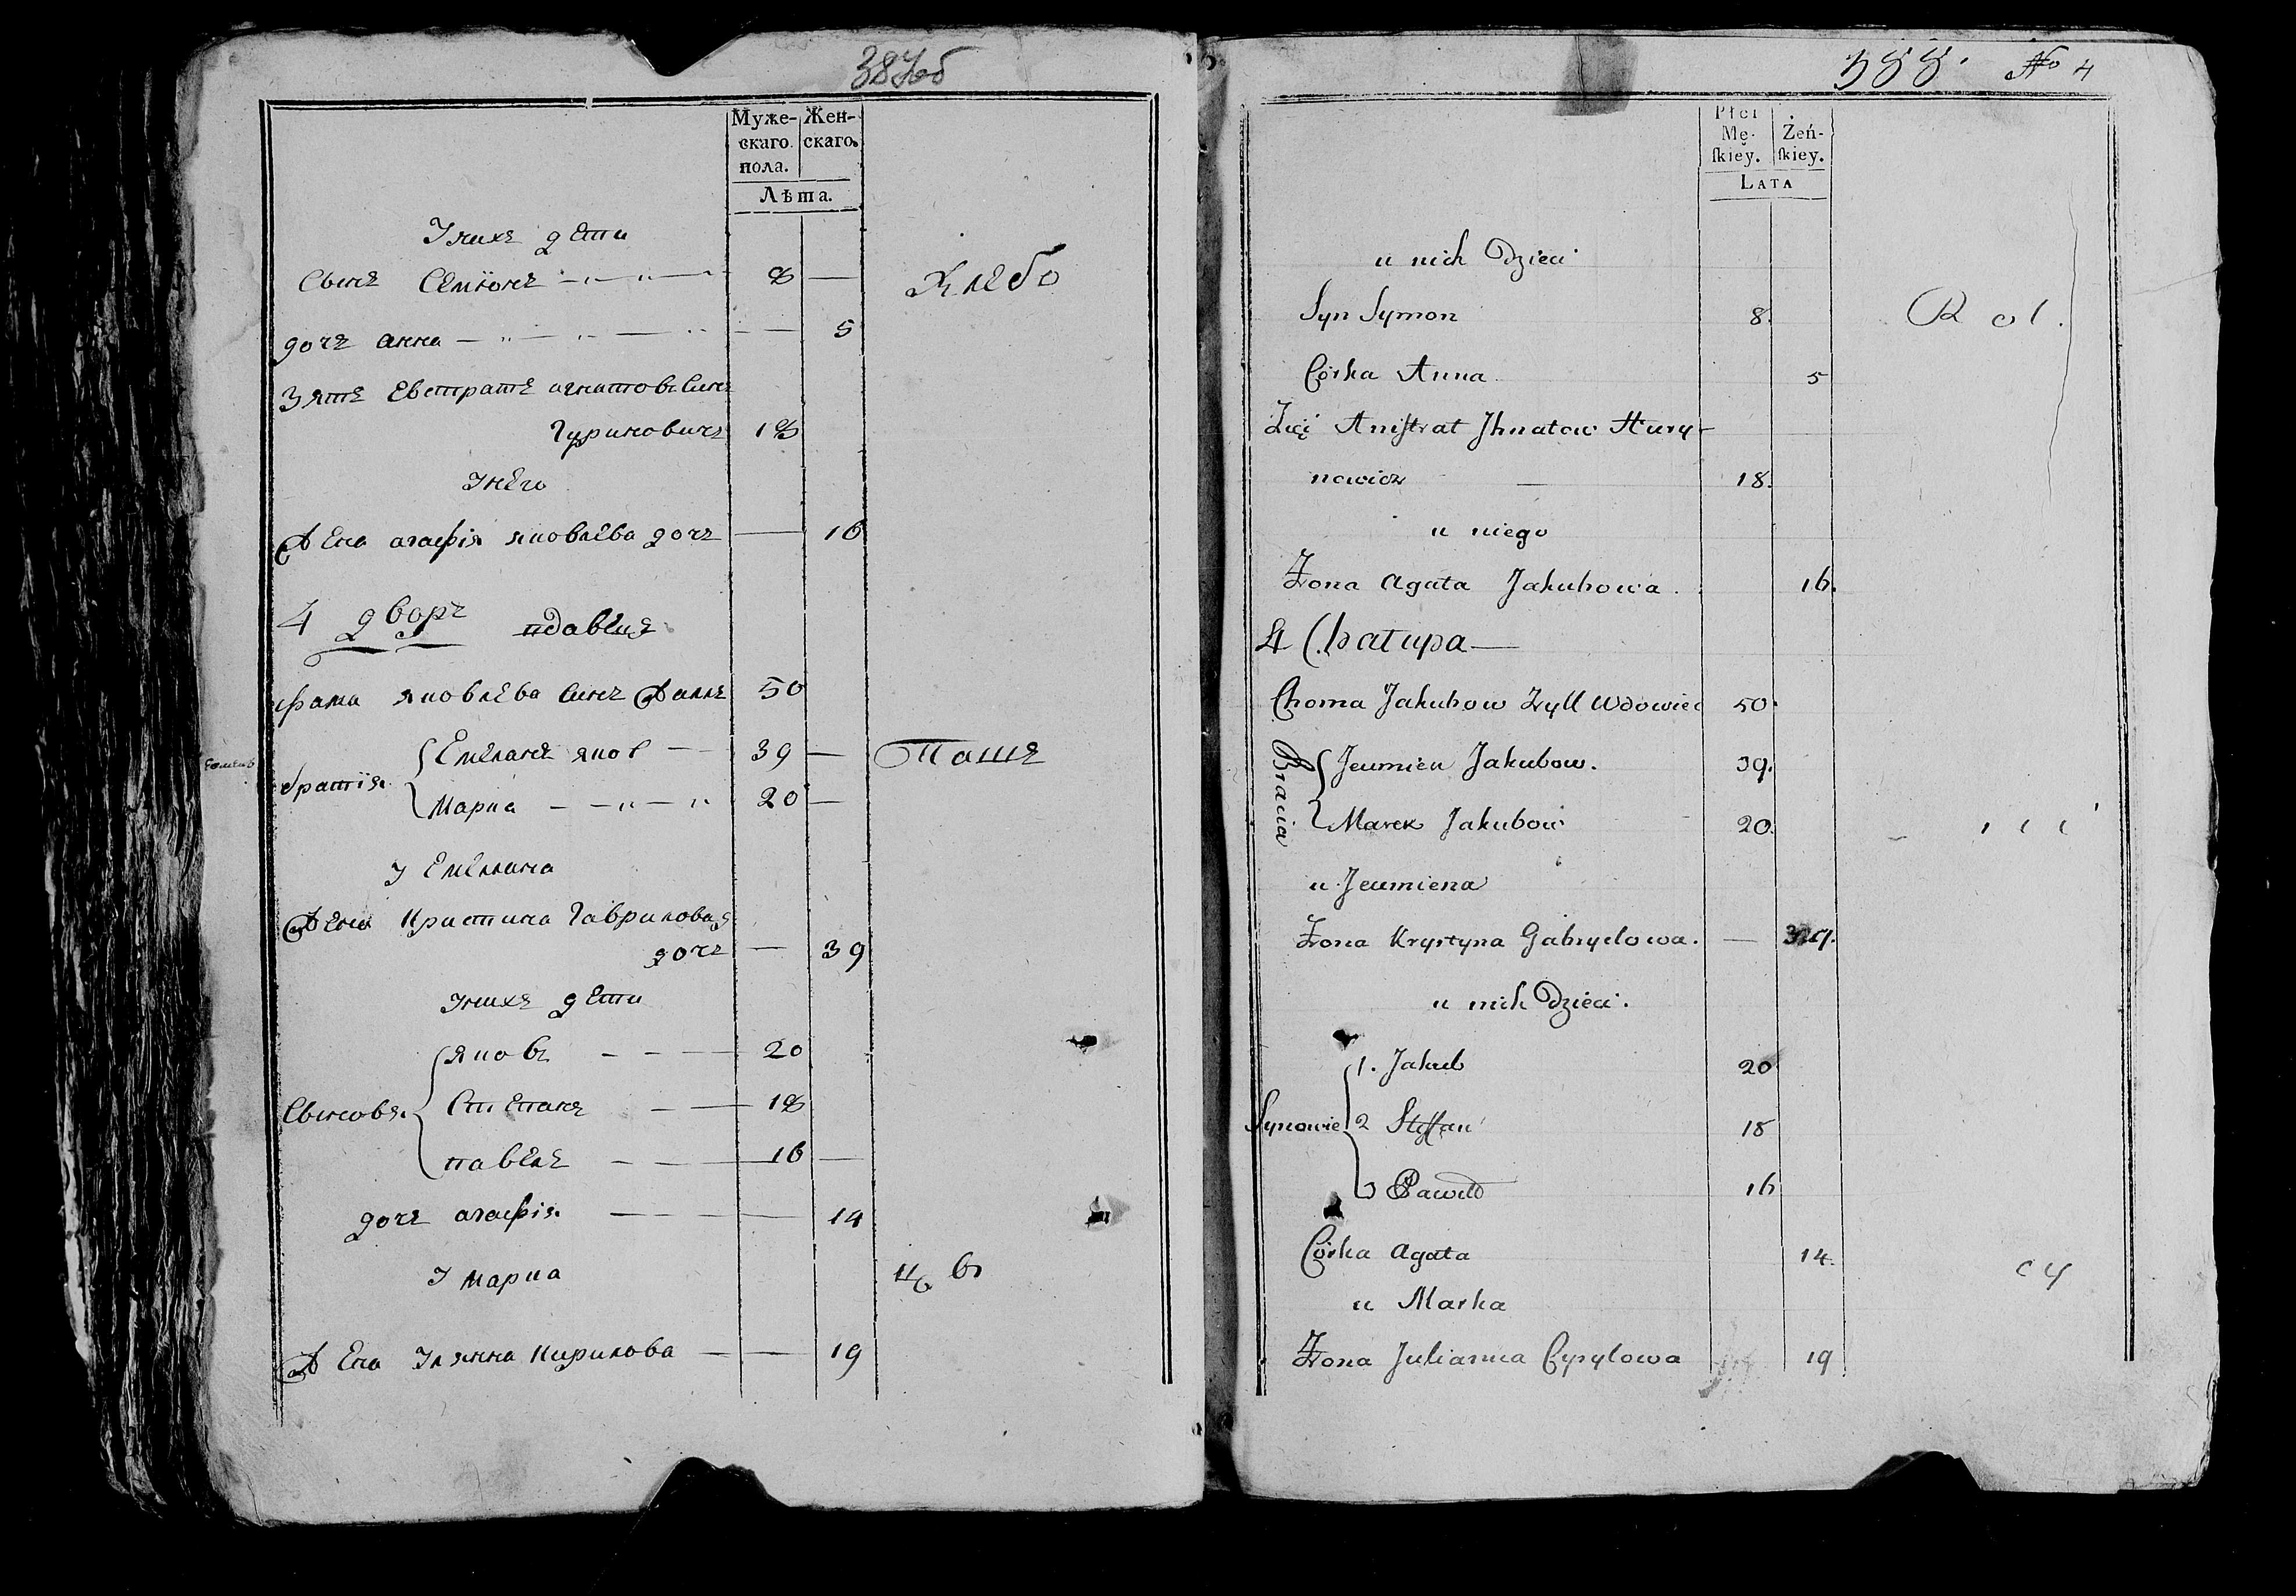 387об
Муже-
скаго
пола.
Жен-
скаго.
Лѣта.
Унихъ дети
Сынъ Семіонъ 8
хлебо
дочъ анна 5
Зять Евстратъ игнатовъ Синъ
Гуриновичъ 18
Унего
Жена агафія яковлева дочъ 16
4 дворъ вдавецъ
фама яковлева Синъ 50
братія
Емеланъ яков 39
паше
Марка 20
У Емелана
Жена Кристина Гаврилова
дочъ 39
Унихъ дети
Сыновя
яковъ 20
Степанъ 18
павелъ 16
дочъ агафія 14
У марка
въ
Жена Улянна Кирилова 19
388. No 4
Płci
Mę-
skiey.
Żeń-
skiey.
LATA
u nich Dzieci
Syn Symon 8.
Rol.
Córka Anna 5
Zięć Anistrat Jhnatow Hury-
nowicz 18.
u niego
Żona Agata Jakubowa. 16.
4 Chatupa
Choma Jakubow Żyll Wdowiec 50.
Bracia
Jeumien Jakubow. 39.
Marek Jakubow 20.
u Jeumiena
Żona Krystyna Gabryelowa. 39.
u nich Dzieci.
Synowie
1. Jakub 20
2 Steffan 18
3 Paweł 16
Córka Agata 14.
u Marka
Żona Julianna Cyrylowa 19